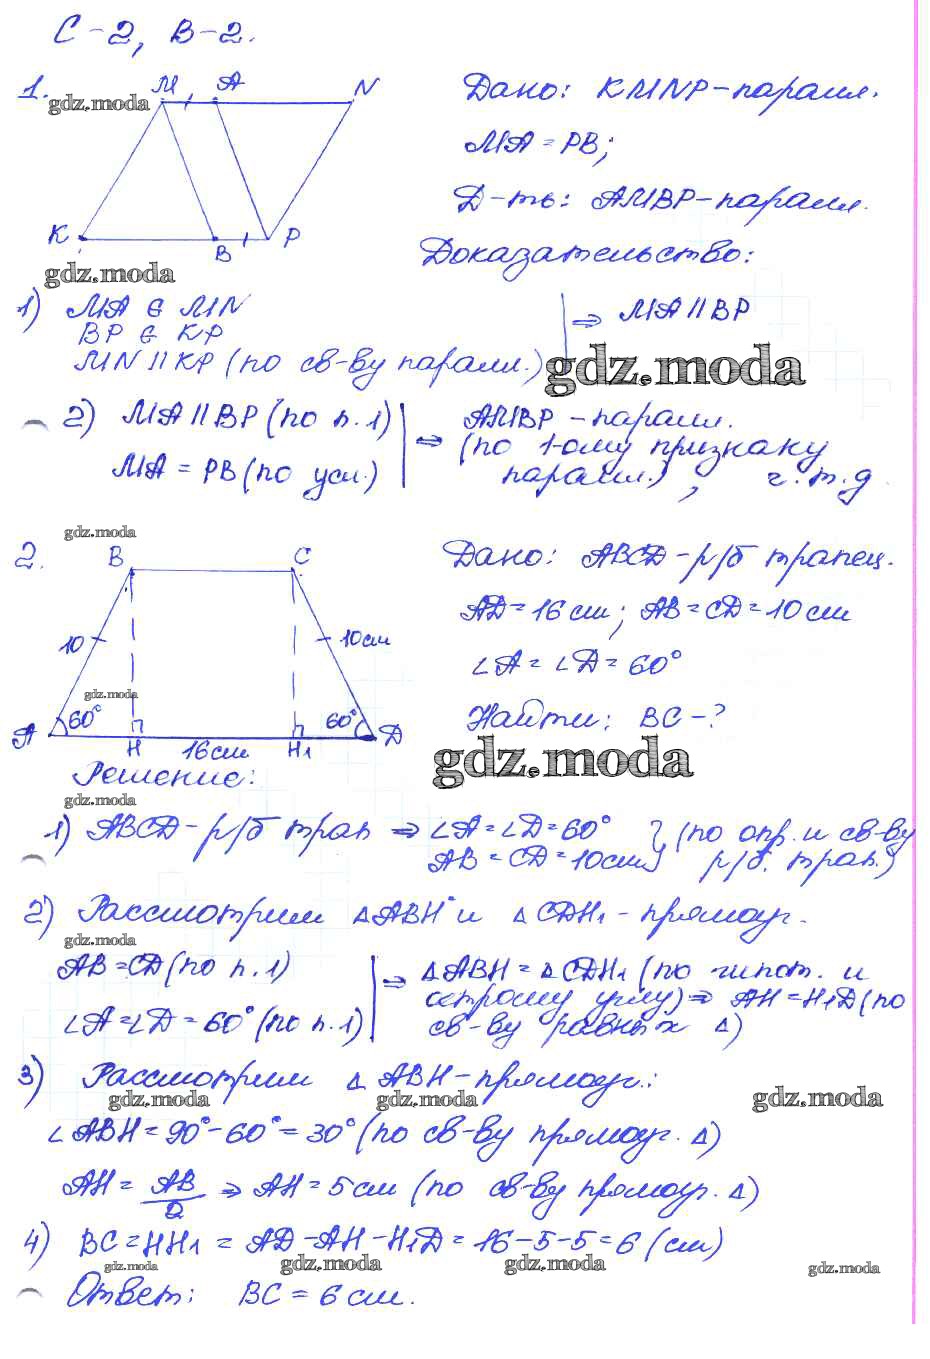 С-2, В-2.
1.
M A N
gdz.moda
K B P
Дано: KMNP-паралл.
MA = PB;
Д-ть: AMBP-паралл.
Доказательство:
gdz.moda
1) MA ∈ MN
BP ∈ KP
MN || KP (по св-ву паралл.)
⇒ MA || BP
gdz.moda
2) MA || BP (по п.1)
MA = PB (по усл.)
⇒ AMBP - паралл.
(по 1-ому признаку
паралл.), ч.т.д.
gdz.moda
2.
B C
10 10см
gdz.moda
A 60° 60° D
H 16см H₁
Дано: ABCD-р/б трапец.
AD=16см; AB=CD=10см
∠A = ∠D = 60°
Найти: BC-?
gdz.moda
Решение:
gdz.moda
1) ABCD-р/б трап ⇒ ∠A=∠D=60° } (по опр. и св-ву
AB=CD=10см р/б. трап.)
2) Рассмотрим △ABH и △CDH₁ - прямоуг.
gdz.moda
AB=CD (по п.1)
∠A=∠D=60° (по п.1)
⇒ △ABH=△CDH₁ (по гипот. и
острому углу) ⇒ AH=H₁D (по
св-ву равных △)
3) Рассмотрим △ABH-прямоуг.:
gdz.moda gdz.moda gdz.moda
∠ABH=90°-60°=30° (по св-ву прямоуг. △)
AH = AB/2 ⇒ AH=5см (по св-ву прямоуг. △)
4) BC=HH₁ = AD-AH-H₁D=16-5-5=6 (см)
gdz.moda gdz.moda gdz.moda gdz.moda
Ответ: BC=6см.